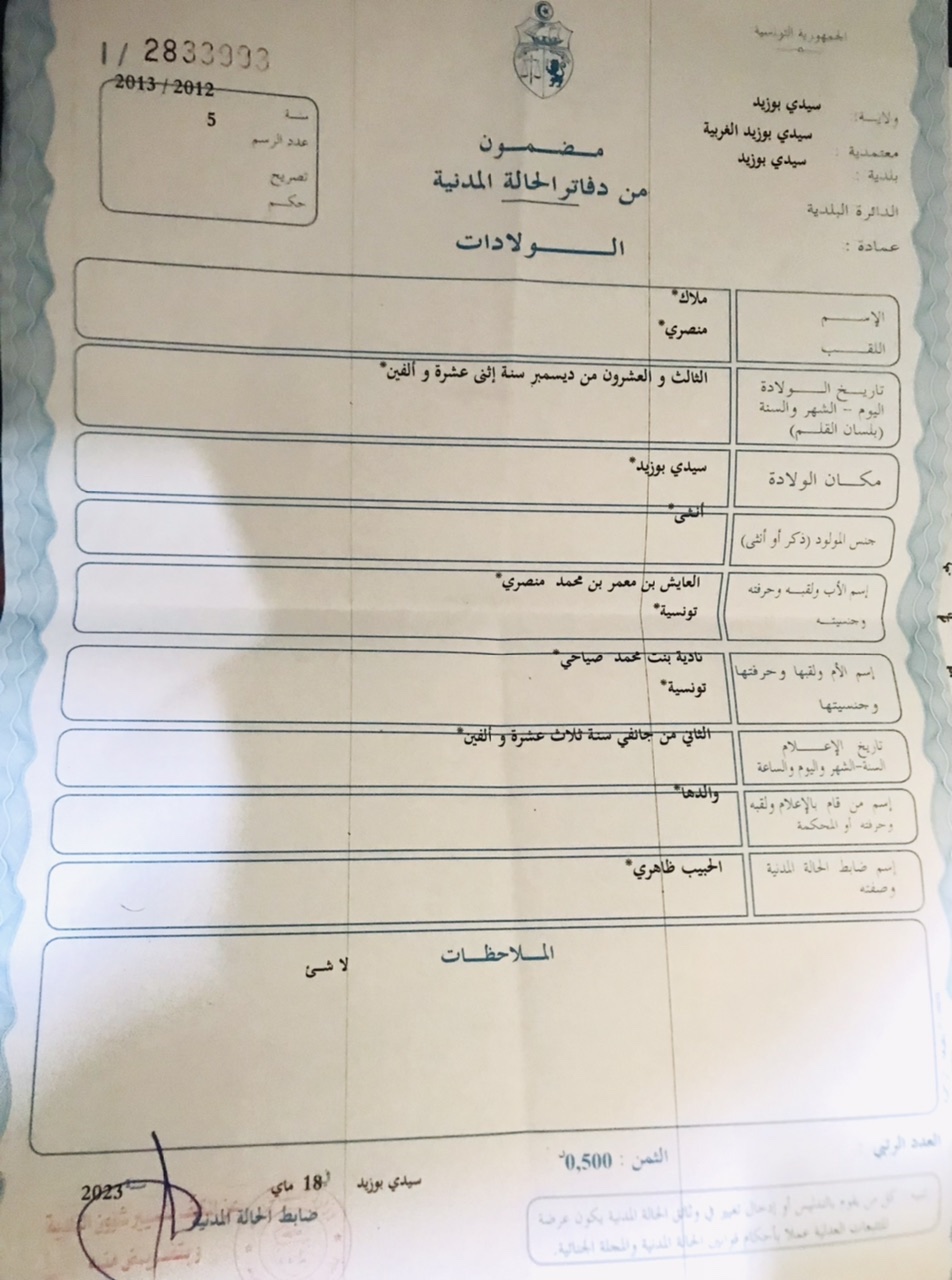 الجمهورية التونسية
I / 2833993
2013 / 2012
سنة
5
عدد الرسم
تصريح
حكم
ولاية: سيدي بوزيد
معتمدية : سيدي بوزيد الغربية
بلدية : سيدي بوزيد
الدائرة البلدية
عمادة :
مضمون
من دفاتر الحالة المدنية
الولادات
الإسم ملاك*
اللقب منصري*
تاريخ الولادة الثالث و العشرون من ديسمبر سنة إثنى عشرة و ألفين*
اليوم – الشهر والسنة
(بلسان القلم)
مكان الولادة سيدي بوزيد*
جنس المولود (ذكر أو أنثى) أنثى*
إسم الأب ولقبه وحرفته العايش بن معمر بن محمد منصري*
وجنسيته تونسية*
إسم الأم ولقبها وحرفتها نادية بنت محمد صياحي*
وجنسيتها تونسية*
تاريخ الإعلام الثاني من جانفي سنة ثلاث عشرة و ألفين*
السنة-الشهر واليوم والساعة
إسم من قام بالإعلام ولقبه والدها*
وحرفته أو المحكمة
إسم ضابط الحالة المدنية الحبيب ظاهري*
وصفته
الملاحظات
لا شئ
العدد الرتبي :
الثمن : 0,500د
سيدي بوزيد 18 ماي 2023
ضابط الحالة المدنية
كل من يقوم بالتدليس أو إدخال تغيير في وثائق الحالة المدنية يكون عرضة
للتتبعات العدلية عملا بأحكام قوانين الحالة المدنية والمجلة الجنائية.